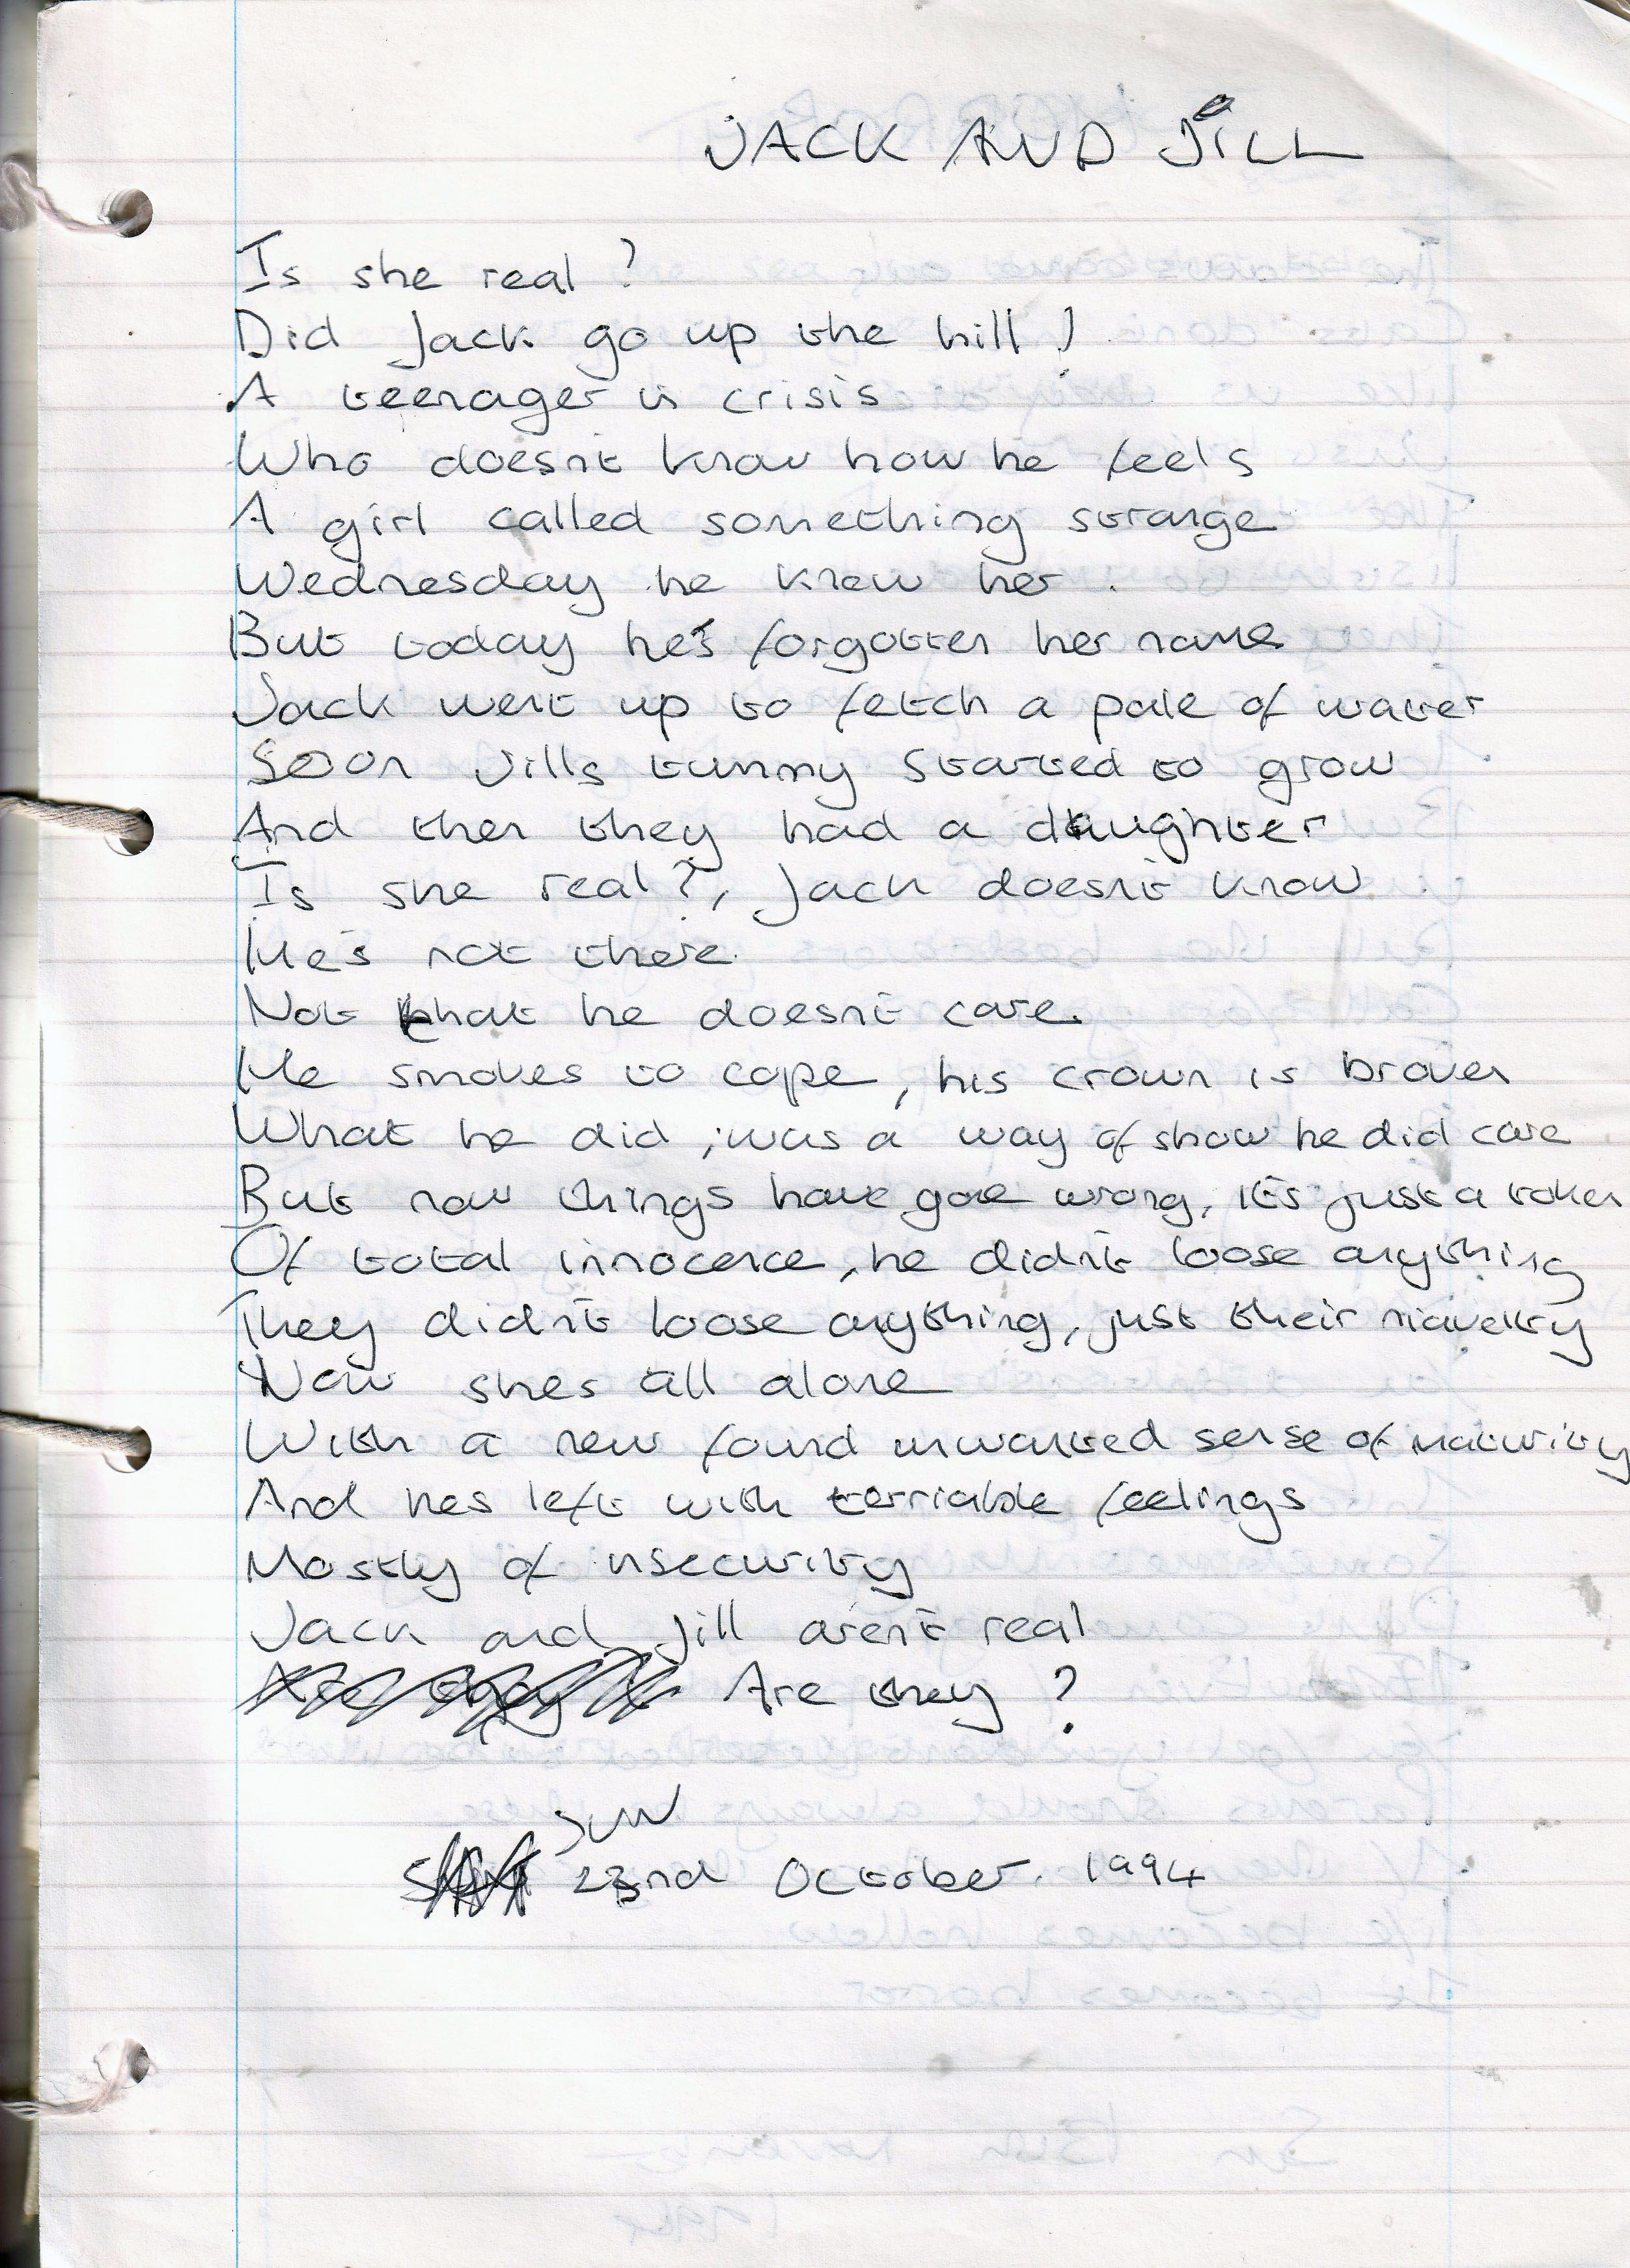 JACK AND JILL
Is she real?
Did Jack go up the hill?
A teenager in crisis
Who doesn't know how he feels
A girl called something strange
Wednesday he knew her.
But today he's forgotten her name
Jack went up to fetch a pale of water
Soon Jills tummy started to grow
And then they had a daughter
Is she real?, Jack doesn't know
He's not there
Not that he doesn't care.
He smokes to cope, his crown is broken
What he did, was a way of show he did care
But now things have gone wrong, it's just a token
Of total innocence, he didn't loose anything
They didn't loose anything, just their niavety
Now shes all alone
With a new found unwanted sense of maturity
And hes left with terriable feelings
Mostly of insecurity
Jack and Jill aren't real
Are they?
SUN
23nd October. 1994